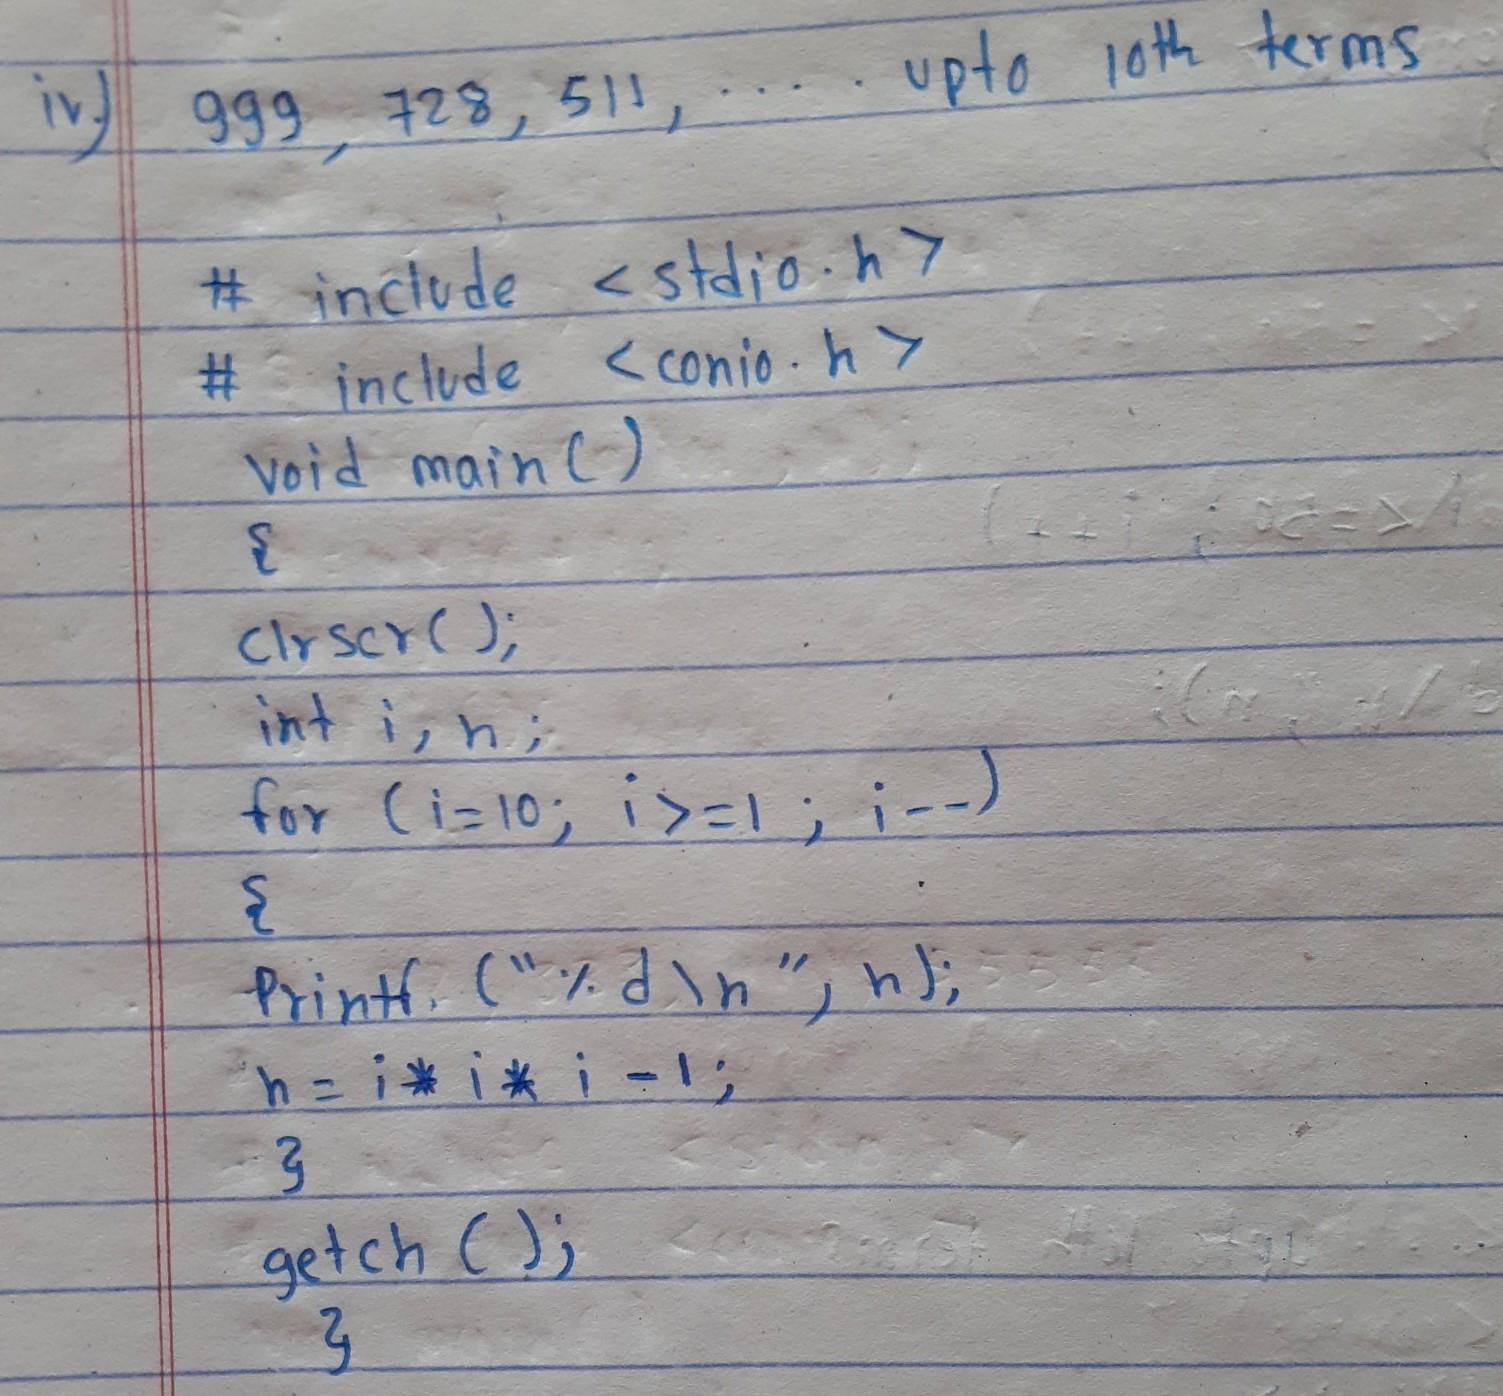 iv) 999, 728, 511, ..... upto 10th terms
# include <stdio.h>
# include <conio.h>
void main()
{
clrscr();
int i, n;
for (i=10; i>=1; i--)
{
Printf. ("%d\n", n);
n = i* i* i -1;
}
getch ();
}